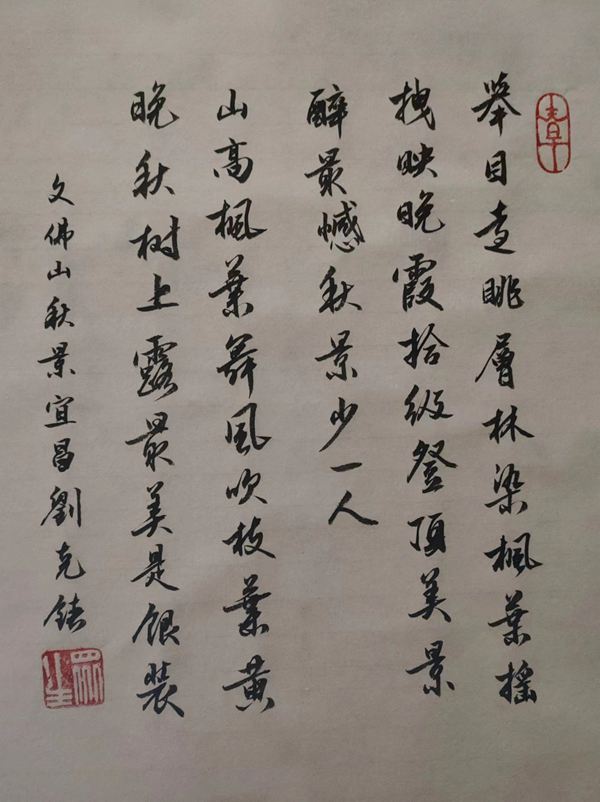 舉目遠眺層林染楓葉摇
拽映晚霞拾级登頂美景
醉最憾秋景少一人
山高楓葉舞風吹枝葉黄
晚秋树上露最美是銀装
文佛山秋景宜昌劉克